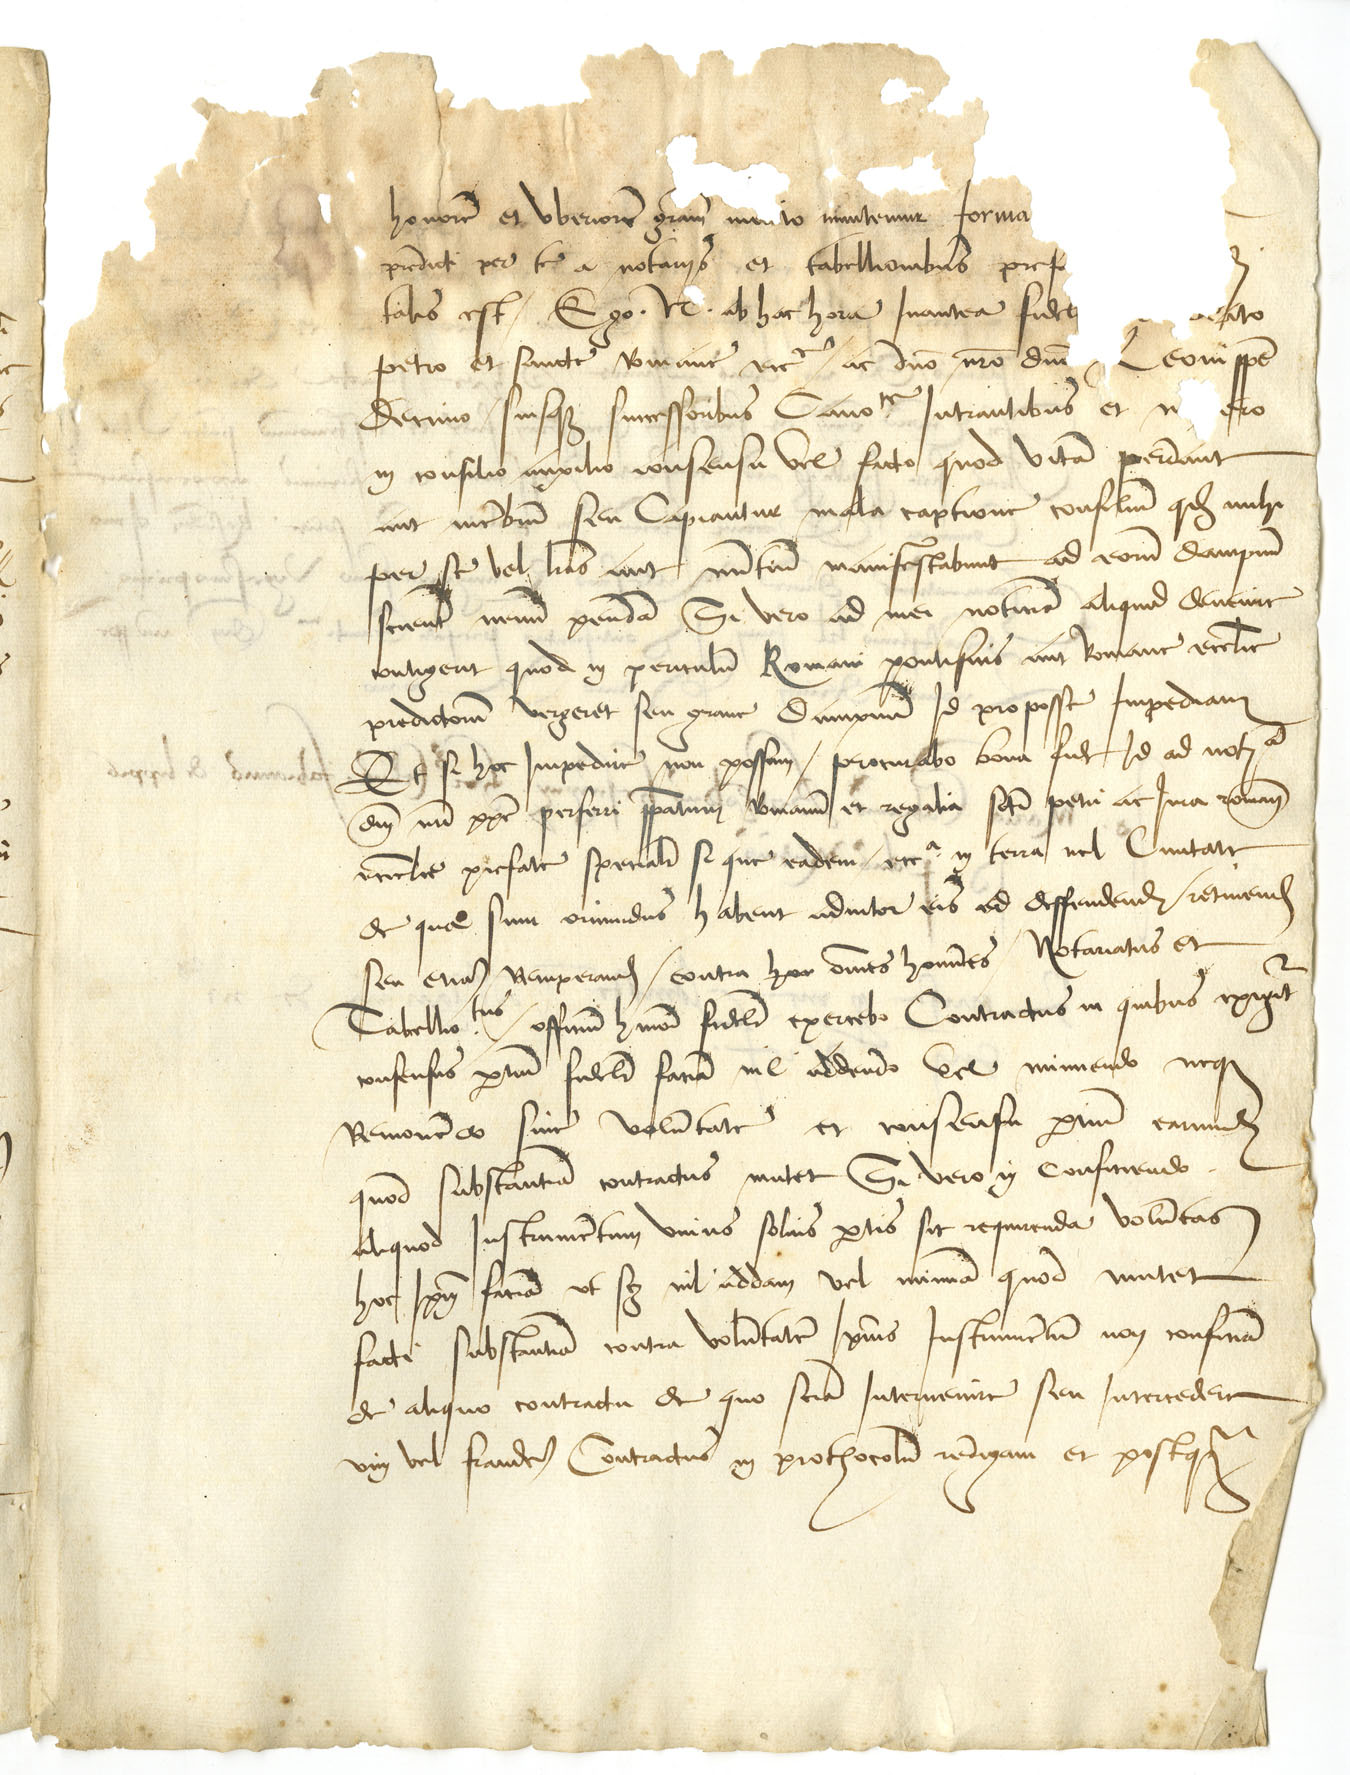 honorē et vberiorē grām merito mīntemur forma
predicti per te a notarijs et tabellionibus pref
talis est / Ego . N . ab hac hora Inantea fidel beato
petro et sancte Romane ecc / ac dno nro dno Leoni ppe
Decimo / suisq3 successoribus Canote Intrantibus et n ero
in consilio auxilio consensu Vel facto quod Vitā perdant
aut mēbrum seu Capiantur mala captione consilium qd mihi
per se vel lras aut nūtium manifestabunt ad eorum dampnum
scient nemini pandā Si vero ad mei notitiā aliquid devenire
contigerit quod in periculū Romani pontificis aut Romane ecclie
predictorum vergeret seu grave Dampnum Id pro posse Impediam
Et si hoc Impedire non possem / procurabo bona fide Id ad notia
dni nri ppe perferri ppatum Romanum et regalia scti petri ac Iura romane
ecclie prefate specialr si que eadem / ecca in terra vel Civitate
de qua sum oriundus habent adiutor eis ad deffendend / retinend
seu etiā Recuperand / contra hoc omnes homines / Notariatus et
Tabelliotus / offitium hmoi fidelr exercebo Contractus in quibus exigitr
consensus ptium fidelr faciā nil addendo Vel minuendo neq3
Removēdo sine Volūtate et consensu ptium earumd
quod substantiā contractus mutet Si vero in Conficiendo
aliquod Instrumētum Vnius solius ptis sit requirenda Volūtas
hoc Ipm faciā ut s3 nil addam Vel minuā quod mutet
facti substantiā contra Volūtatē Ipius Instrumētū non conficiā
de aliquo contractu de quo sciā Intervenire seu Intercedere
vim vel fraudē Contractus in prothocolū redigam et postq3